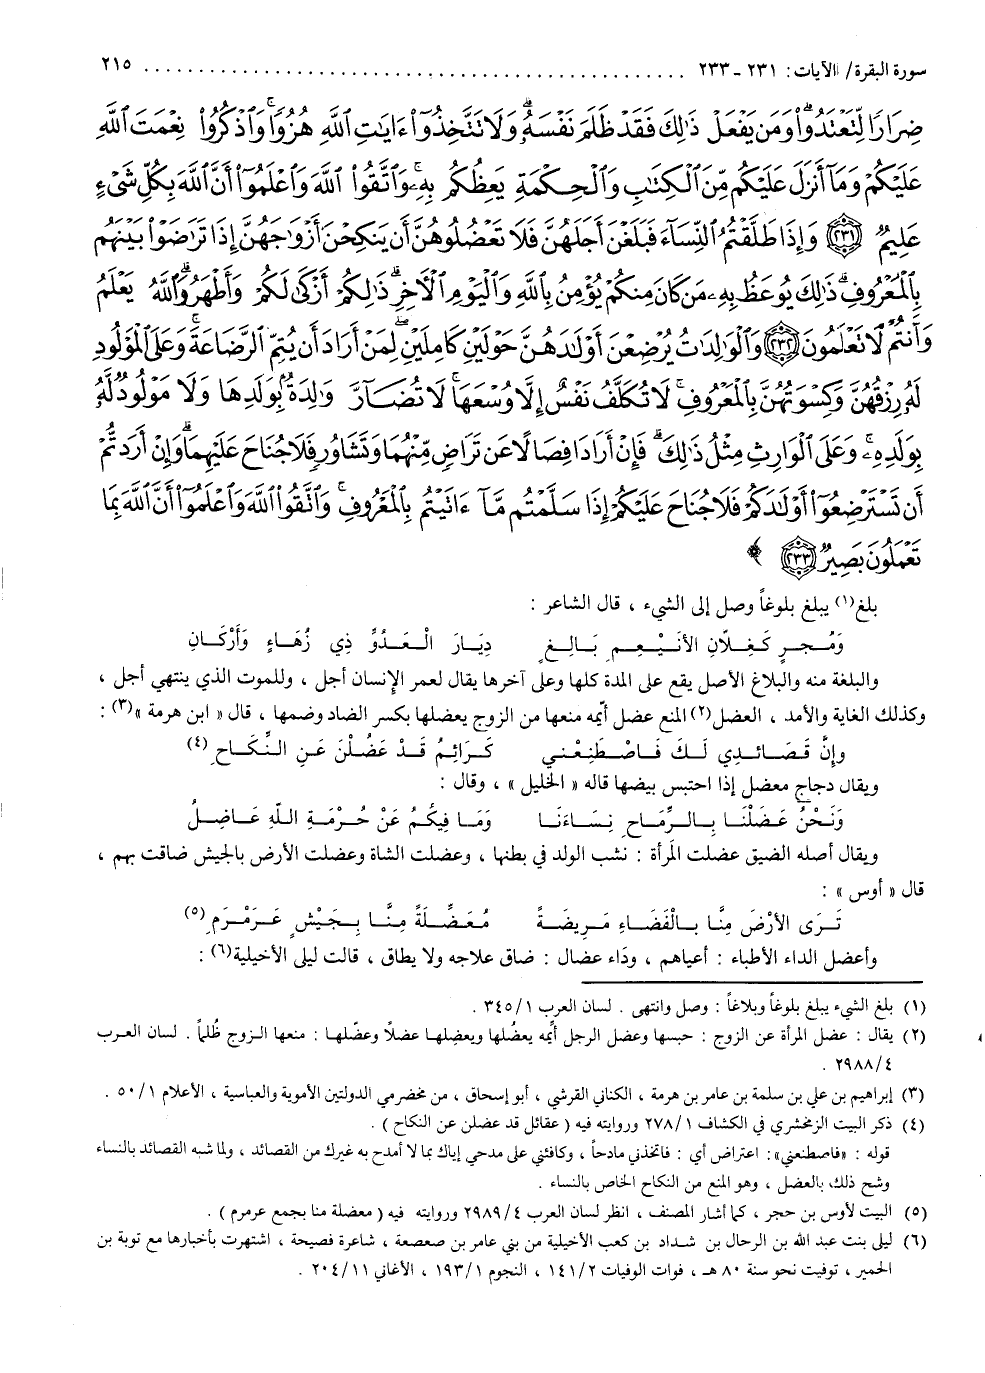 سورة البقرة/ الآيات: ٢٣١ - ٢٣٣ ........................................ ٢١٥
ضِرَارًا لِّتَعْتَدُوا۟ ۚ وَمَن يَفْعَلْ ذَٰلِكَ فَقَدْ ظَلَمَ نَفْسَهُۥ ۚ وَلَا تَتَّخِذُوٓا۟ ءَايَٰتِ ٱللَّهِ هُزُوًا ۚ وَٱذْكُرُوا۟ نِعْمَتَ ٱللَّهِ
عَلَيْكُمْ وَمَآ أَنزَلَ عَلَيْكُم مِّنَ ٱلْكِتَٰبِ وَٱلْحِكْمَةِ يَعِظُكُم بِهِۦ ۚ وَٱتَّقُوا۟ ٱللَّهَ وَٱعْلَمُوٓا۟ أَنَّ ٱللَّهَ بِكُلِّ شَىْءٍ
عَلِيمٌ ﴿٢٣١﴾ وَإِذَا طَلَّقْتُمُ ٱلنِّسَآءَ فَبَلَغْنَ أَجَلَهُنَّ فَلَا تَعْضُلُوهُنَّ أَن يَنكِحْنَ أَزْوَٰجَهُنَّ إِذَا تَرَٰضَوْا۟ بَيْنَهُم
بِٱلْمَعْرُوفِ ۗ ذَٰلِكَ يُوعَظُ بِهِۦ مَن كَانَ مِنكُمْ يُؤْمِنُ بِٱللَّهِ وَٱلْيَوْمِ ٱلْـَٔاخِرِ ۗ ذَٰلِكُمْ أَزْكَىٰ لَكُمْ وَأَطْهَرُ ۗ وَٱللَّهُ يَعْلَمُ
وَأَنتُمْ لَا تَعْلَمُونَ ﴿٢٣٢﴾ وَٱلْوَٰلِدَٰتُ يُرْضِعْنَ أَوْلَٰدَهُنَّ حَوْلَيْنِ كَامِلَيْنِ ۖ لِمَنْ أَرَادَ أَن يُتِمَّ ٱلرَّضَاعَةَ ۚ وَعَلَى ٱلْمَوْلُودِ
لَهُۥ رِزْقُهُنَّ وَكِسْوَتُهُنَّ بِٱلْمَعْرُوفِ ۚ لَا تُكَلَّفُ نَفْسٌ إِلَّا وُسْعَهَا ۚ لَا تُضَآرَّ وَٰلِدَةٌۢ بِوَلَدِهَا وَلَا مَوْلُودٌ لَّهُۥ
بِوَلَدِهِۦ ۚ وَعَلَى ٱلْوَارِثِ مِثْلُ ذَٰلِكَ ۗ فَإِنْ أَرَادَا فِصَالًا عَن تَرَاضٍ مِّنْهُمَا وَتَشَاوُرٍ فَلَا جُنَاحَ عَلَيْهِمَا ۗ وَإِنْ أَرَدتُّمْ
أَن تَسْتَرْضِعُوٓا۟ أَوْلَٰدَكُمْ فَلَا جُنَاحَ عَلَيْكُمْ إِذَا سَلَّمْتُم مَّآ ءَاتَيْتُم بِٱلْمَعْرُوفِ ۗ وَٱتَّقُوا۟ ٱللَّهَ وَٱعْلَمُوٓا۟ أَنَّ ٱللَّهَ بِمَا
تَعْمَلُونَ بَصِيرٌ ﴿٢٣٣﴾ ﴾
بلغ(١) يبلغ بلوغاً وصل إلى الشيء ، قال الشاعر :
وَمُجرٍ كَغِلّانِ الأنَيْعِمِ بَالِغٍ دِيَارَ الْعَدُوِّ ذِي زُهَاءٍ وَأَرْكَانِ
والبلغة منه والبلاغ الأصل يقع على المدة كلها وعلى آخرها يقال لعمر الإنسان أجل ، وللموت الذي ينتهي أجل ،
وكذلك الغاية والأمد ، العضل(٢) المنع عضل أيّمه منعها من الزوج يعضلها بكسر الضاد وضمها ، قال « ابن هرمة »(٣) :
وإنَّ قَصَائدِي لَكَ فَاصْطَنِعْني كَرَائِمُ قَدْ عَضُلْنَ عَنِ النِّكَاحِ (٤)
ويقال دجاج معضل إذا احتبس بيضها قاله « الخليل » ، وقال :
وَنَحْنُ عَضَلْنَا بِالرِّمَاحِ نِسَاءَنَا وَمَا فِيكُمُ عَنْ حُرْمَةِ اللهِ عَاضِلُ
ويقال أصله الضيق عضلت المرأة : نشب الولد في بطنها ، وعضلت الشاة وعضلت الأرض بالجيش ضاقت بهم ،
قال « أوس » :
تَرَى الأرْضَ مِنَّا بِالْفَضَاءِ مَرِيضَةً مُعَضِّلَةً مِنَّا بِجَيْشٍ عَرَمْرَمِ (٥)
وأعضل الداء الأطباء : أعياهم ، وداء عضال : ضاق علاجه ولا يطاق ، قالت ليلى الأخيلية(٦) :
(١) بلغ الشيء يبلغ بلوغاً وبلاغاً : وصل وانتهى . لسان العرب ٣٤٥/١ .
(٢) يقال : عضل المرأة عن الزوج : حبسها وعضل الرجل أيّمه يعضُلها ويعضِلها عضلاً وعضّلها : منعها الزوج ظُلماً . لسان العرب
٢٩٨٨/٤ .
(٣) إبراهيم بن علي بن سلمة بن عامر بن هرمة ، الكناني القرشي ، أبو إسحاق ، من مخضرمي الدولتين الأموية والعباسية ، الأعلام ٥٠/١ .
(٤) ذكر البيت الزمخشري في الكشاف ٢٧٨/١ وروايته فيه ( عقائل قد عضلن عن النكاح ) .
قوله : «فاصطنعني»: اعتراض أي : فاتخذني مادحاً ، وكافئني على مدحي إياك بما لا أمدح به غيرك من القصائد ، ولما شبه القصائد بالنساء
وشح ذلك بالعضل ، وهو المنع من النكاح الخاص بالنساء .
(٥) البيت لأوس بن حجر ، كما أشار المصنف ، انظر لسان العرب ٢٩٨٩/٤ وروايته فيه ( معضلة منا بجمع عرمرم ) .
(٦) ليلى بنت عبد الله بن الرحال بن شداد بن كعب الأخيلية من بني عامر بن صعصعة ، شاعرة فصيحة ، اشتهرت بأخبارها مع توبة بن
الحمير ، توفيت نحو سنة ٨٠ هـ ، فوات الوفيات ١٤١/٢ ، النجوم ١٩٣/١ ، الأغاني ٢٠٤/١١ .